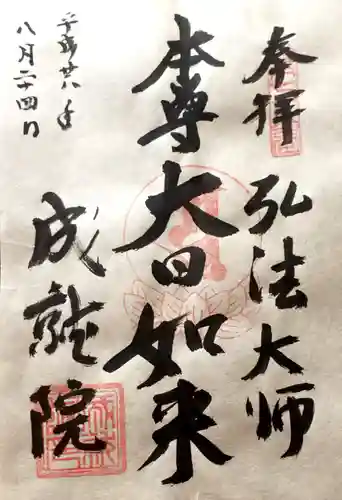 奉拝
弘法大師
本尊
大日如来
平成廿八年
八月二十四日
成就院